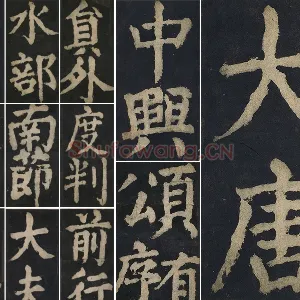 大唐
中興頌有序
水部
貟外
南節
度判
大夫
前行
Shufawang.CN